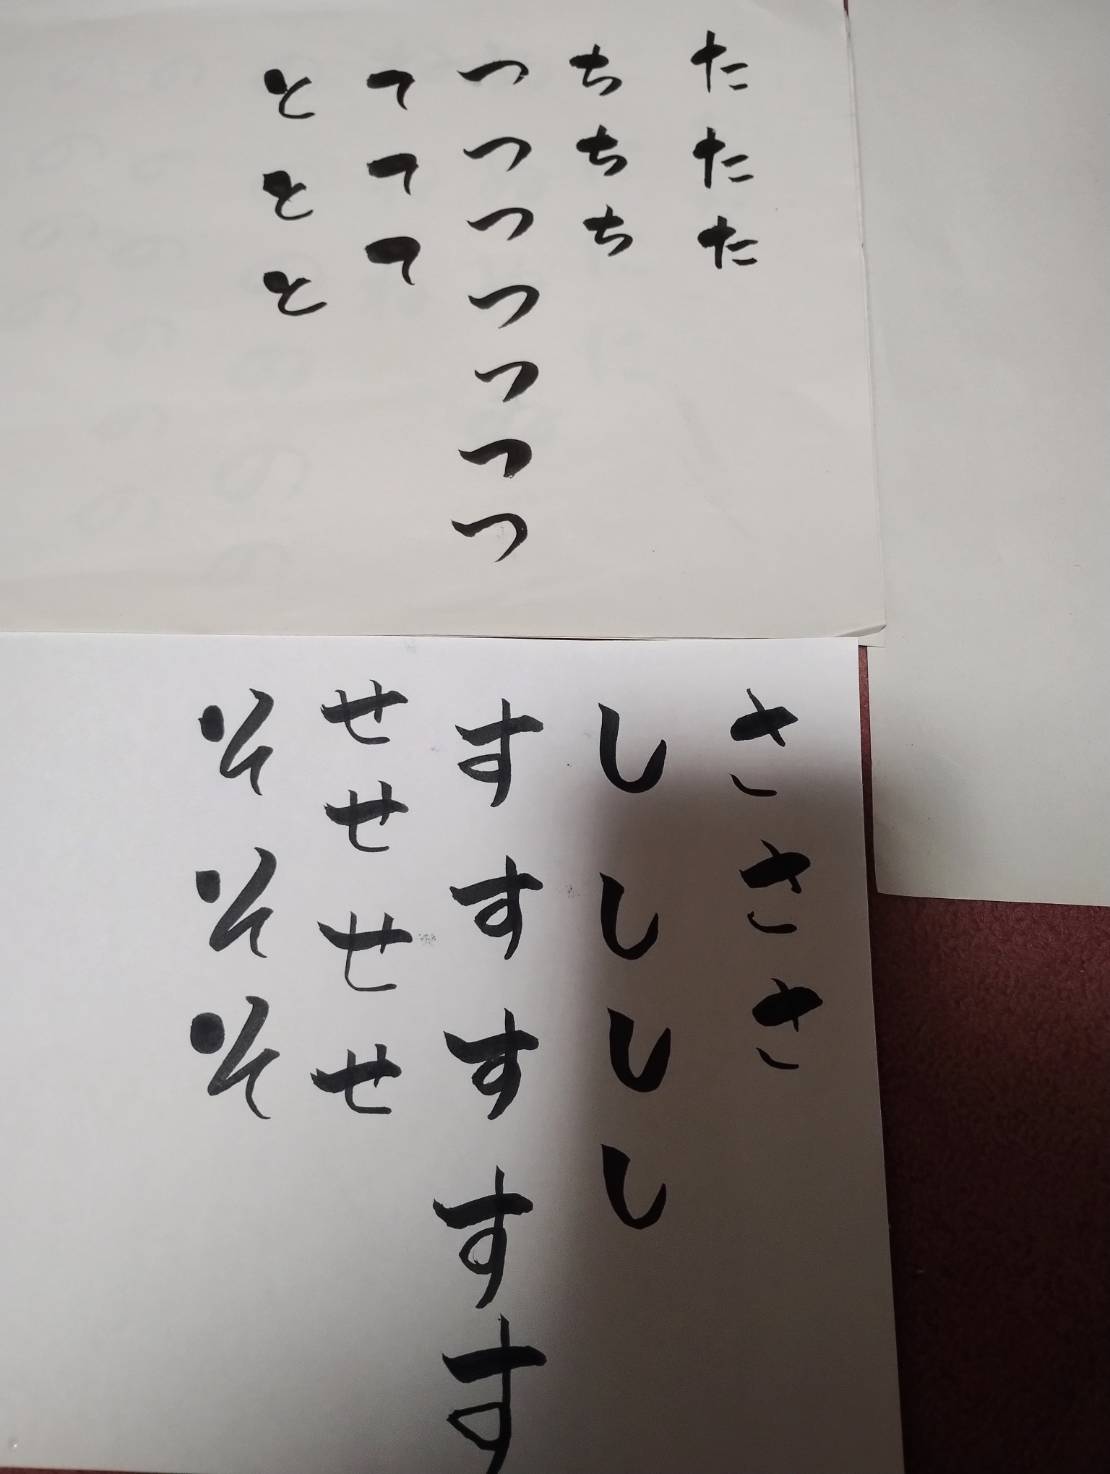 たたた
ちちち
つつつつつつつ
ててて
ととと
さささ
しししし
すすすすす
せせせせ
そそそ